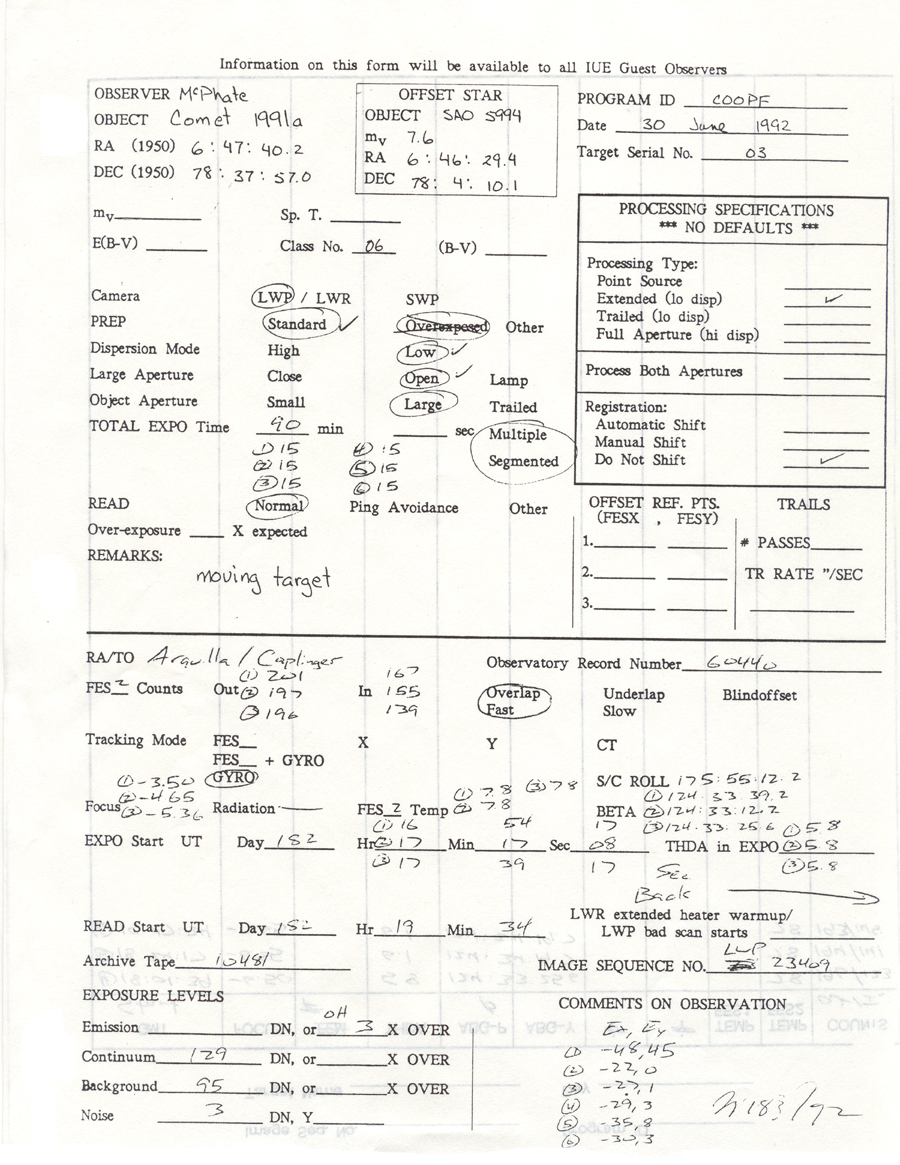 Information on this form will be available to all IUE Guest Observers
OBSERVER McPhate
OBJECT Comet 1991a
RA (1950) 6 : 47 : 40.2
DEC (1950) 78 : 37 : 57.0
OFFSET STAR
OBJECT SAO 5994
mv 7.6
RA 6 : 46 : 29.4
DEC 78 : 4 : 10.1
PROGRAM ID COOPF
Date 30 June 1992
Target Serial No. 03
mv Sp. T.
E(B-V) Class No. 06 (B-V)
PROCESSING SPECIFICATIONS
*** NO DEFAULTS ***
Processing Type:
Point Source
Extended (lo disp) ✓
Trailed (lo disp)
Full Aperture (hi disp)
Process Both Apertures
Registration:
Automatic Shift
Manual Shift
Do Not Shift ✓
Camera LWP / LWR SWP
PREP Standard ✓ Overexposed Other
Dispersion Mode High Low ✓
Large Aperture Close Open ✓ Lamp
Object Aperture Small Large Trailed
TOTAL EXPO Time 90 min sec Multiple
Segmented
① 15 ④ 15
② 15 ⑤ 15
③ 15 ⑥ 15
READ Normal Ping Avoidance Other
Over-exposure X expected
REMARKS:
moving target
OFFSET REF. PTS.
(FESX , FESY)
1.
2.
3.
TRAILS
# PASSES
TR RATE "/SEC
RA/TO Arquilla / Caplinger
Observatory Record Number 60440
FES 2 Counts Out In Overlap Underlap Blindoffset
Fast Slow
① 201 167
② 197 155
③ 196 139
Tracking Mode FES X Y CT
FES + GYRO
GYRO
① -3.50
② -4.65
Focus ③ -5.36 Radiation —
FES 2 Temp ① 7.8 ② 7.8 ③ 7.8
S/C ROLL 175:55:12.2
① 124:33:39.2
BETA ② 124:33:12.2
③ 124:33:25.6
EXPO Start UT Day 182 Hr Min Sec THDA in EXPO
① 16 54 17 ① 5.8
② 17 17 08 ② 5.8
③ 17 39 17 ③ 5.8
See
Back
READ Start UT Day 182 Hr 19 Min 34
LWR extended heater warmup/
LWP bad scan starts
Archive Tape 10481
IMAGE SEQUENCE NO. LWP 23409
EXPOSURE LEVELS
Emission DN, or OH 3 X OVER
Continuum 129 DN, or X OVER
Background 95 DN, or X OVER
Noise 3 DN, Y
COMMENTS ON OBSERVATION
Ex, Ey
① -48, 45
② -22, 0
③ -27, 1
④ -29, 3
⑤ -35, 8
⑥ -30, 3
183/92